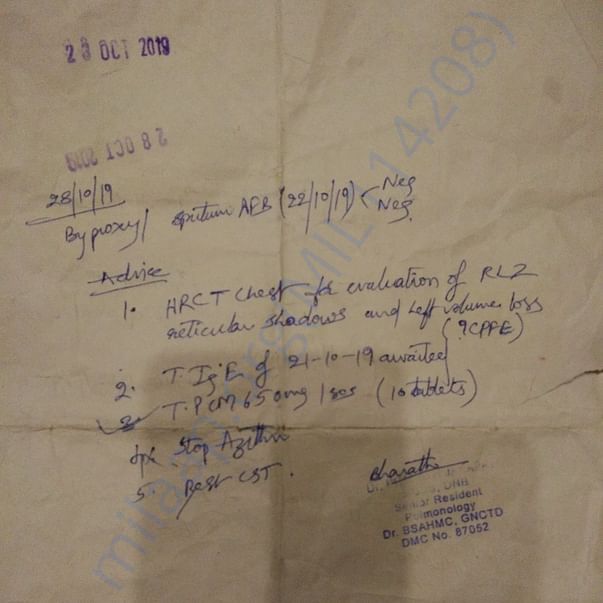 28 OCT 2019
28 OCT 2019
28/10/19
By proxy/ sputum AFB (22/10/19) < Neg
Neg.
Advice
1. HRCT Chest for evaluation of RLZ
reticular shadows and left volume loss
(?CPPE)
2. T. IgE of 21-10-19 awaited
3. T. PCM 650mg 1 sos (10 tablets)
Stop Azithro
5. Rest CST.
Bharath
Dr.
DNB
Senior Resident
Pulmonology
Dr. BSAHMC, GNCTD
DMC No. 87052